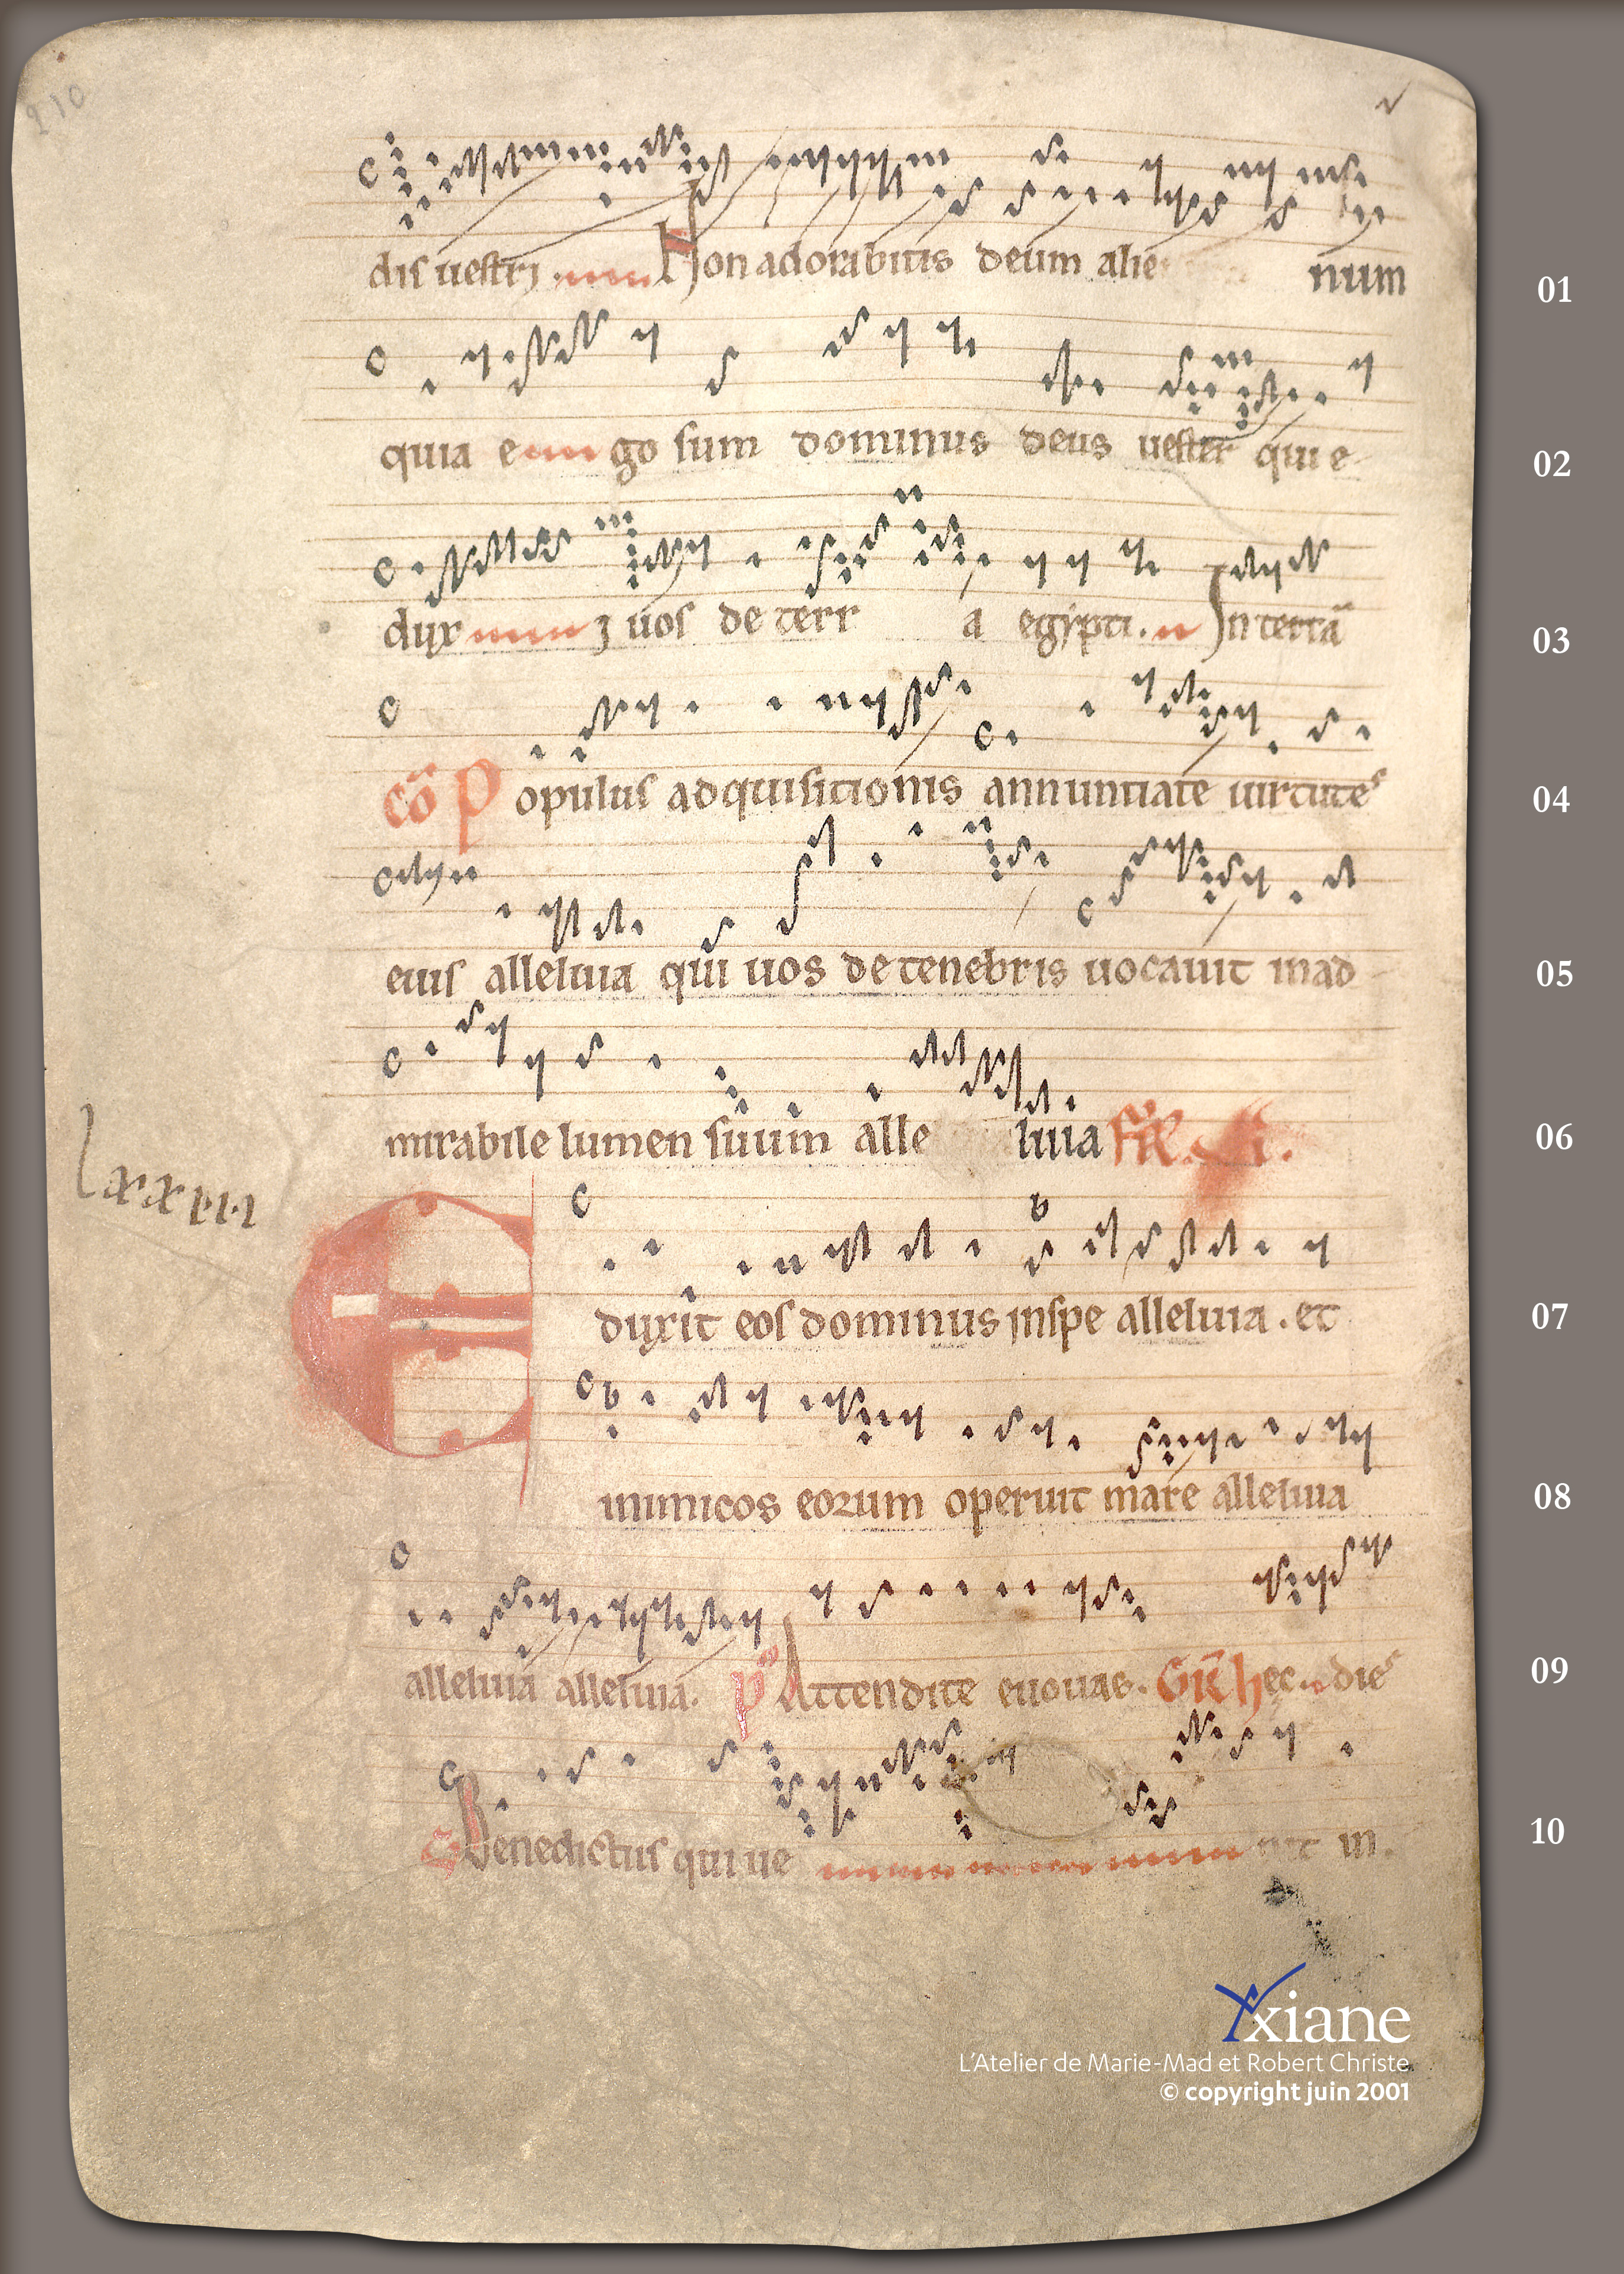 210
dis uestri. Non adorabitis deum alie num 01
quia e go sum dominus deus uester qui e 02
duxi uos de terr a egypti. In terrã 03
cõ Populus adquisitionis annuntiate uirtutes 04
eius alleluia qui uos de tenebris uocauit in ad 05
mirabile lumen suum alle luia 06
Eduxit eos dominus in spe alleluia. et 07
inimicos eorum operuit mare alleluia 08
alleluia alleluia. p̃s Attendite euouae. GR̃ hec dies 09
Benedictus qui ue nit in. 10
Yxiane
L'Atelier de Marie-Mad et Robert Christe
© copyright juin 2001